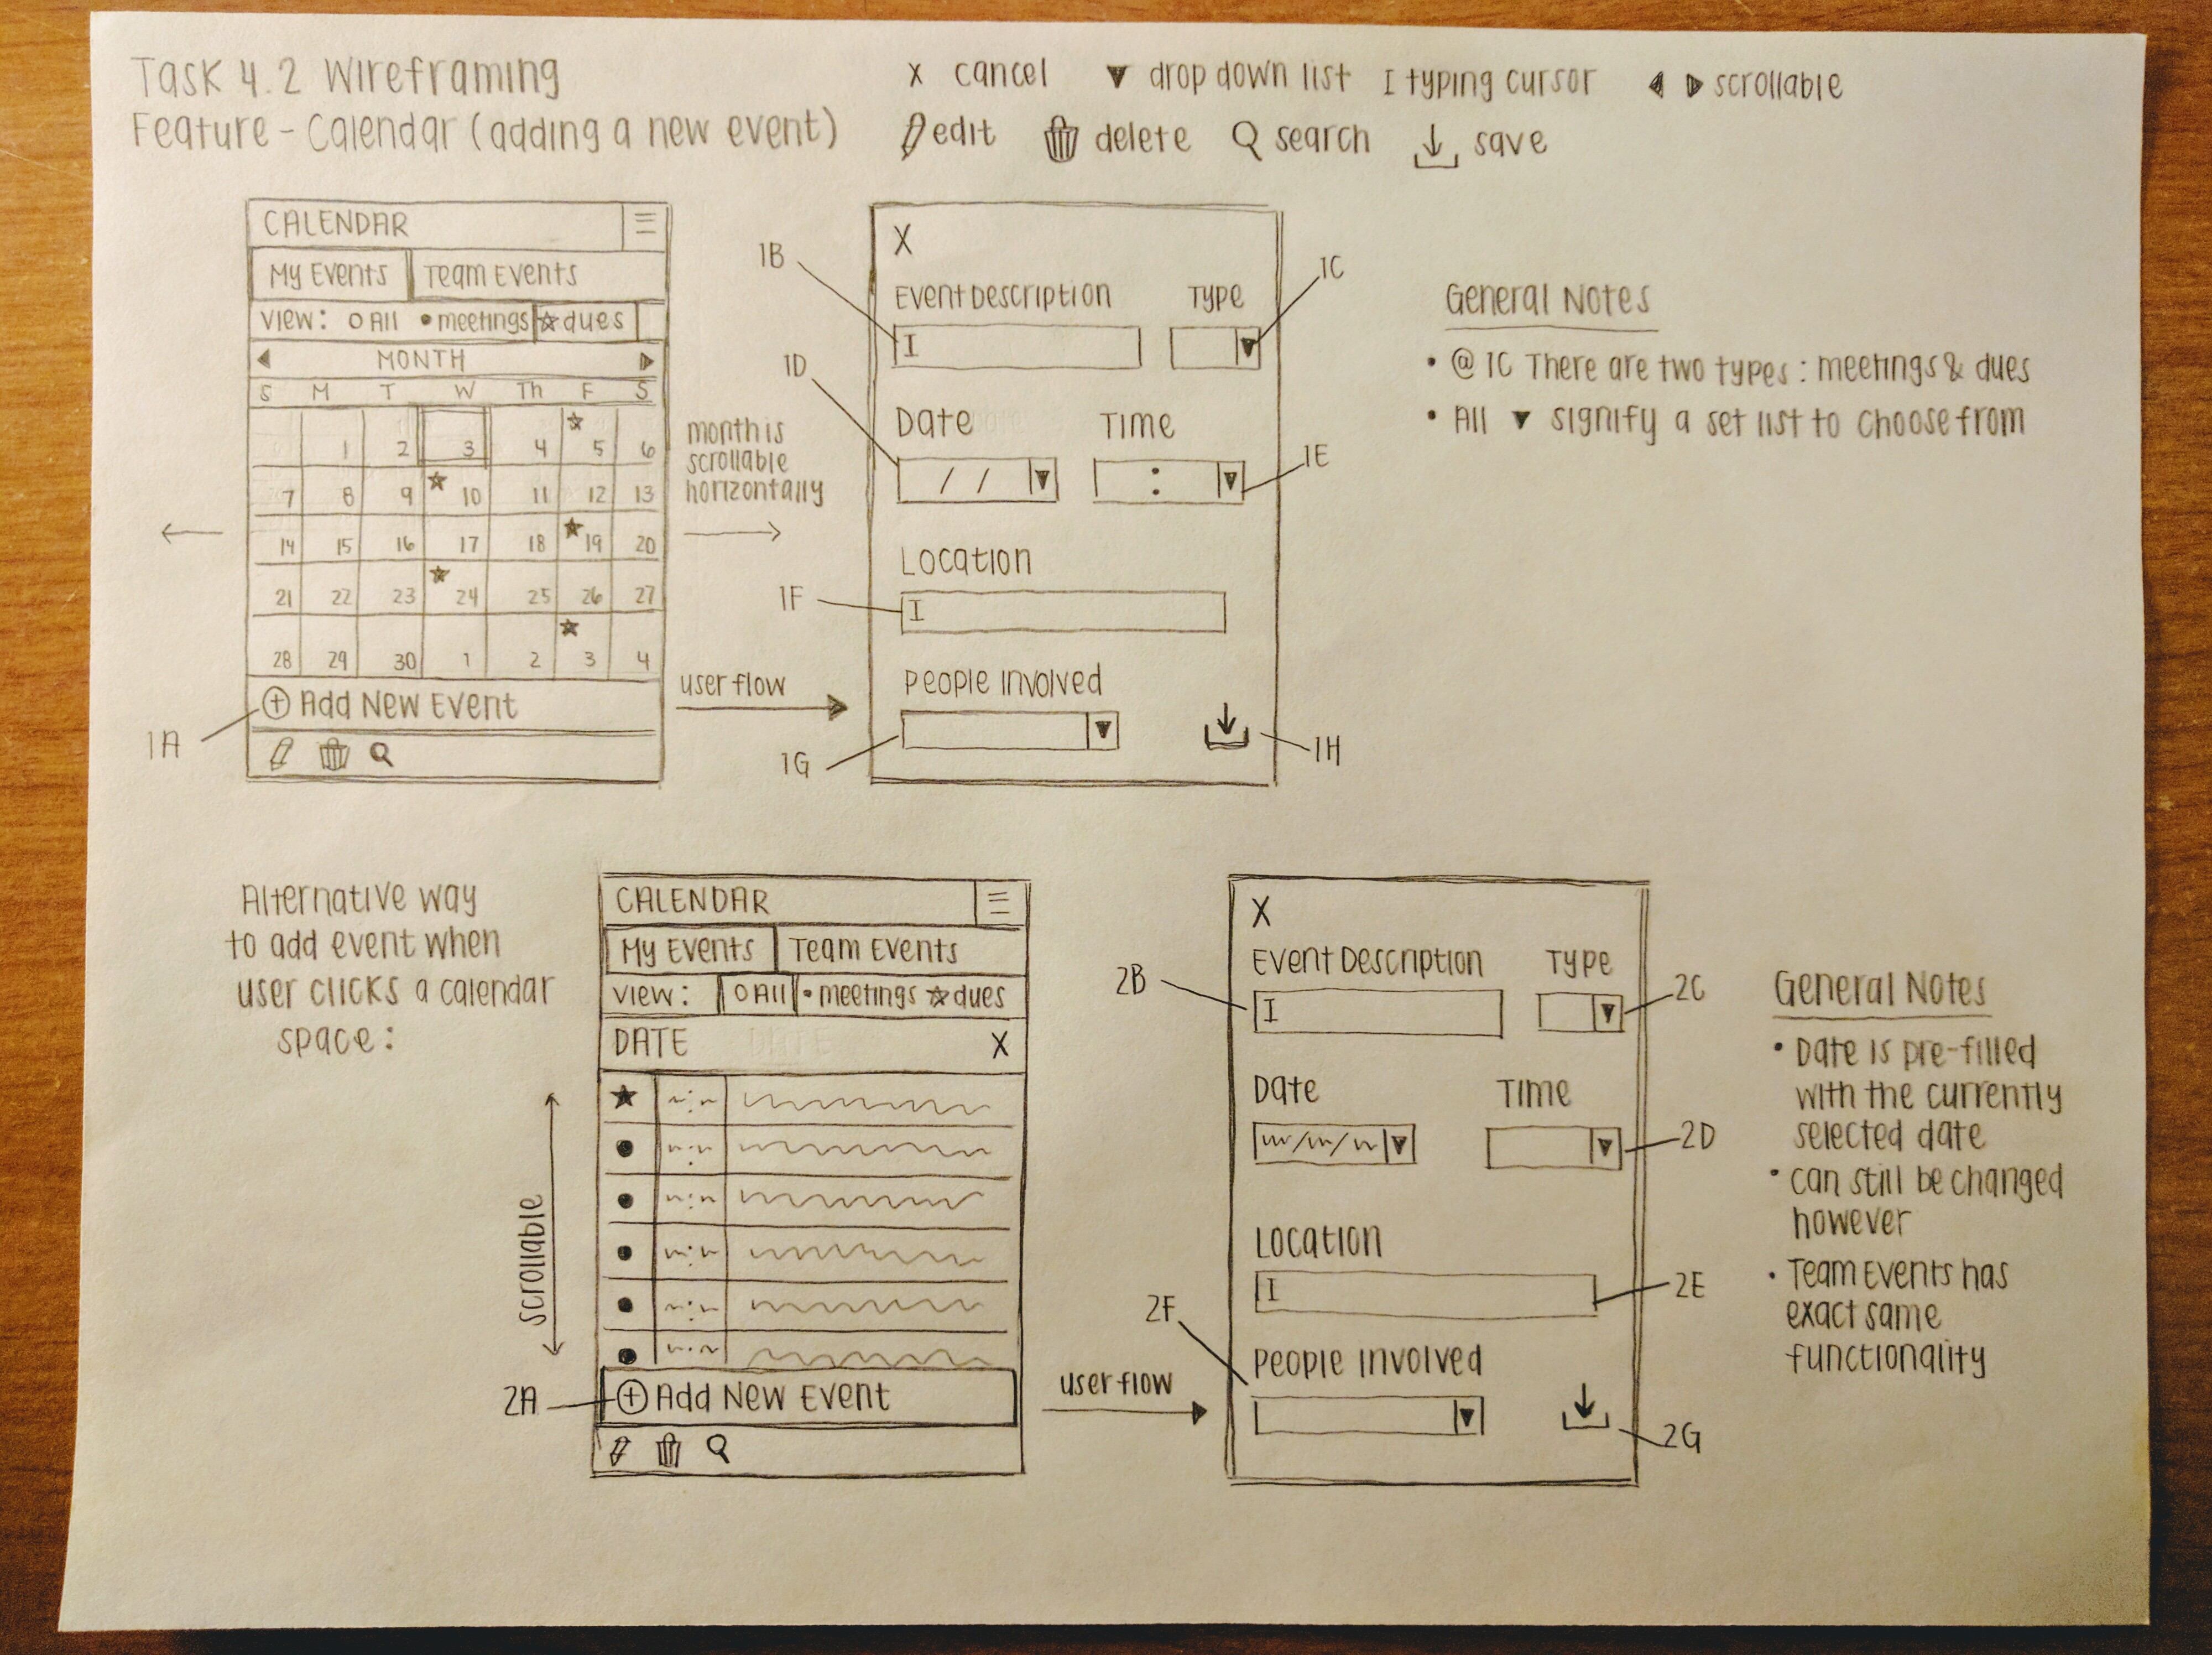 Task 4.2 Wireframing
Feature - Calendar (adding a new event)
X cancel ▼ drop down list I typing cursor ◀ ▶ scrollable
edit delete search save
CALENDAR
My Events Team Events
view: O All • meetings ☆ dues
◀ MONTH ▶
S M T W Th F S
1 2 3 4 5 6
7 8 9 10 11 12 13
14 15 16 17 18 19 20
21 22 23 24 25 26 27
28 29 30 1 2 3 4
+ Add New Event
1A
month is
scrollable
horizontally
user flow
X
1B
1C
Event Description Type
I ▼
1D
Date Time
/ / ▼ : ▼
1E
Location
1F
I
People Involved
▼
1G
1H
General Notes
• @ 1C There are two types: meetings & dues
• All ▼ signify a set list to choose from
Alternative way
to add event when
user clicks a calendar
space:
CALENDAR
My Events Team Events
view: O All • meetings ☆ dues
DATE X
scrollable
2A
+ Add New Event
user flow
X
Event Description Type
2B
2C
I ▼
Date Time
/ / ▼ ▼
2D
Location
I
2E
2F
People Involved
▼
2G
General Notes
• Date is pre-filled
with the currently
selected date
• can still be changed
however
• Team Events has
exact same
functionality